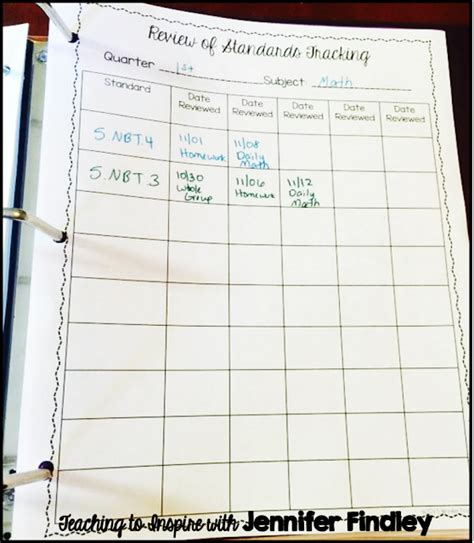 Review of Standards Tracking
Quarter 1st Subject Math
Standard Date Reviewed Date Reviewed Date Reviewed Date Reviewed Date Reviewed
5.NBT.4 11/01 Homework 11/08 Daily Math
5.NBT.3 10/30 Whole Group 11/06 Homework 11/12 Daily Math
Teaching to Inspire with Jennifer Findley